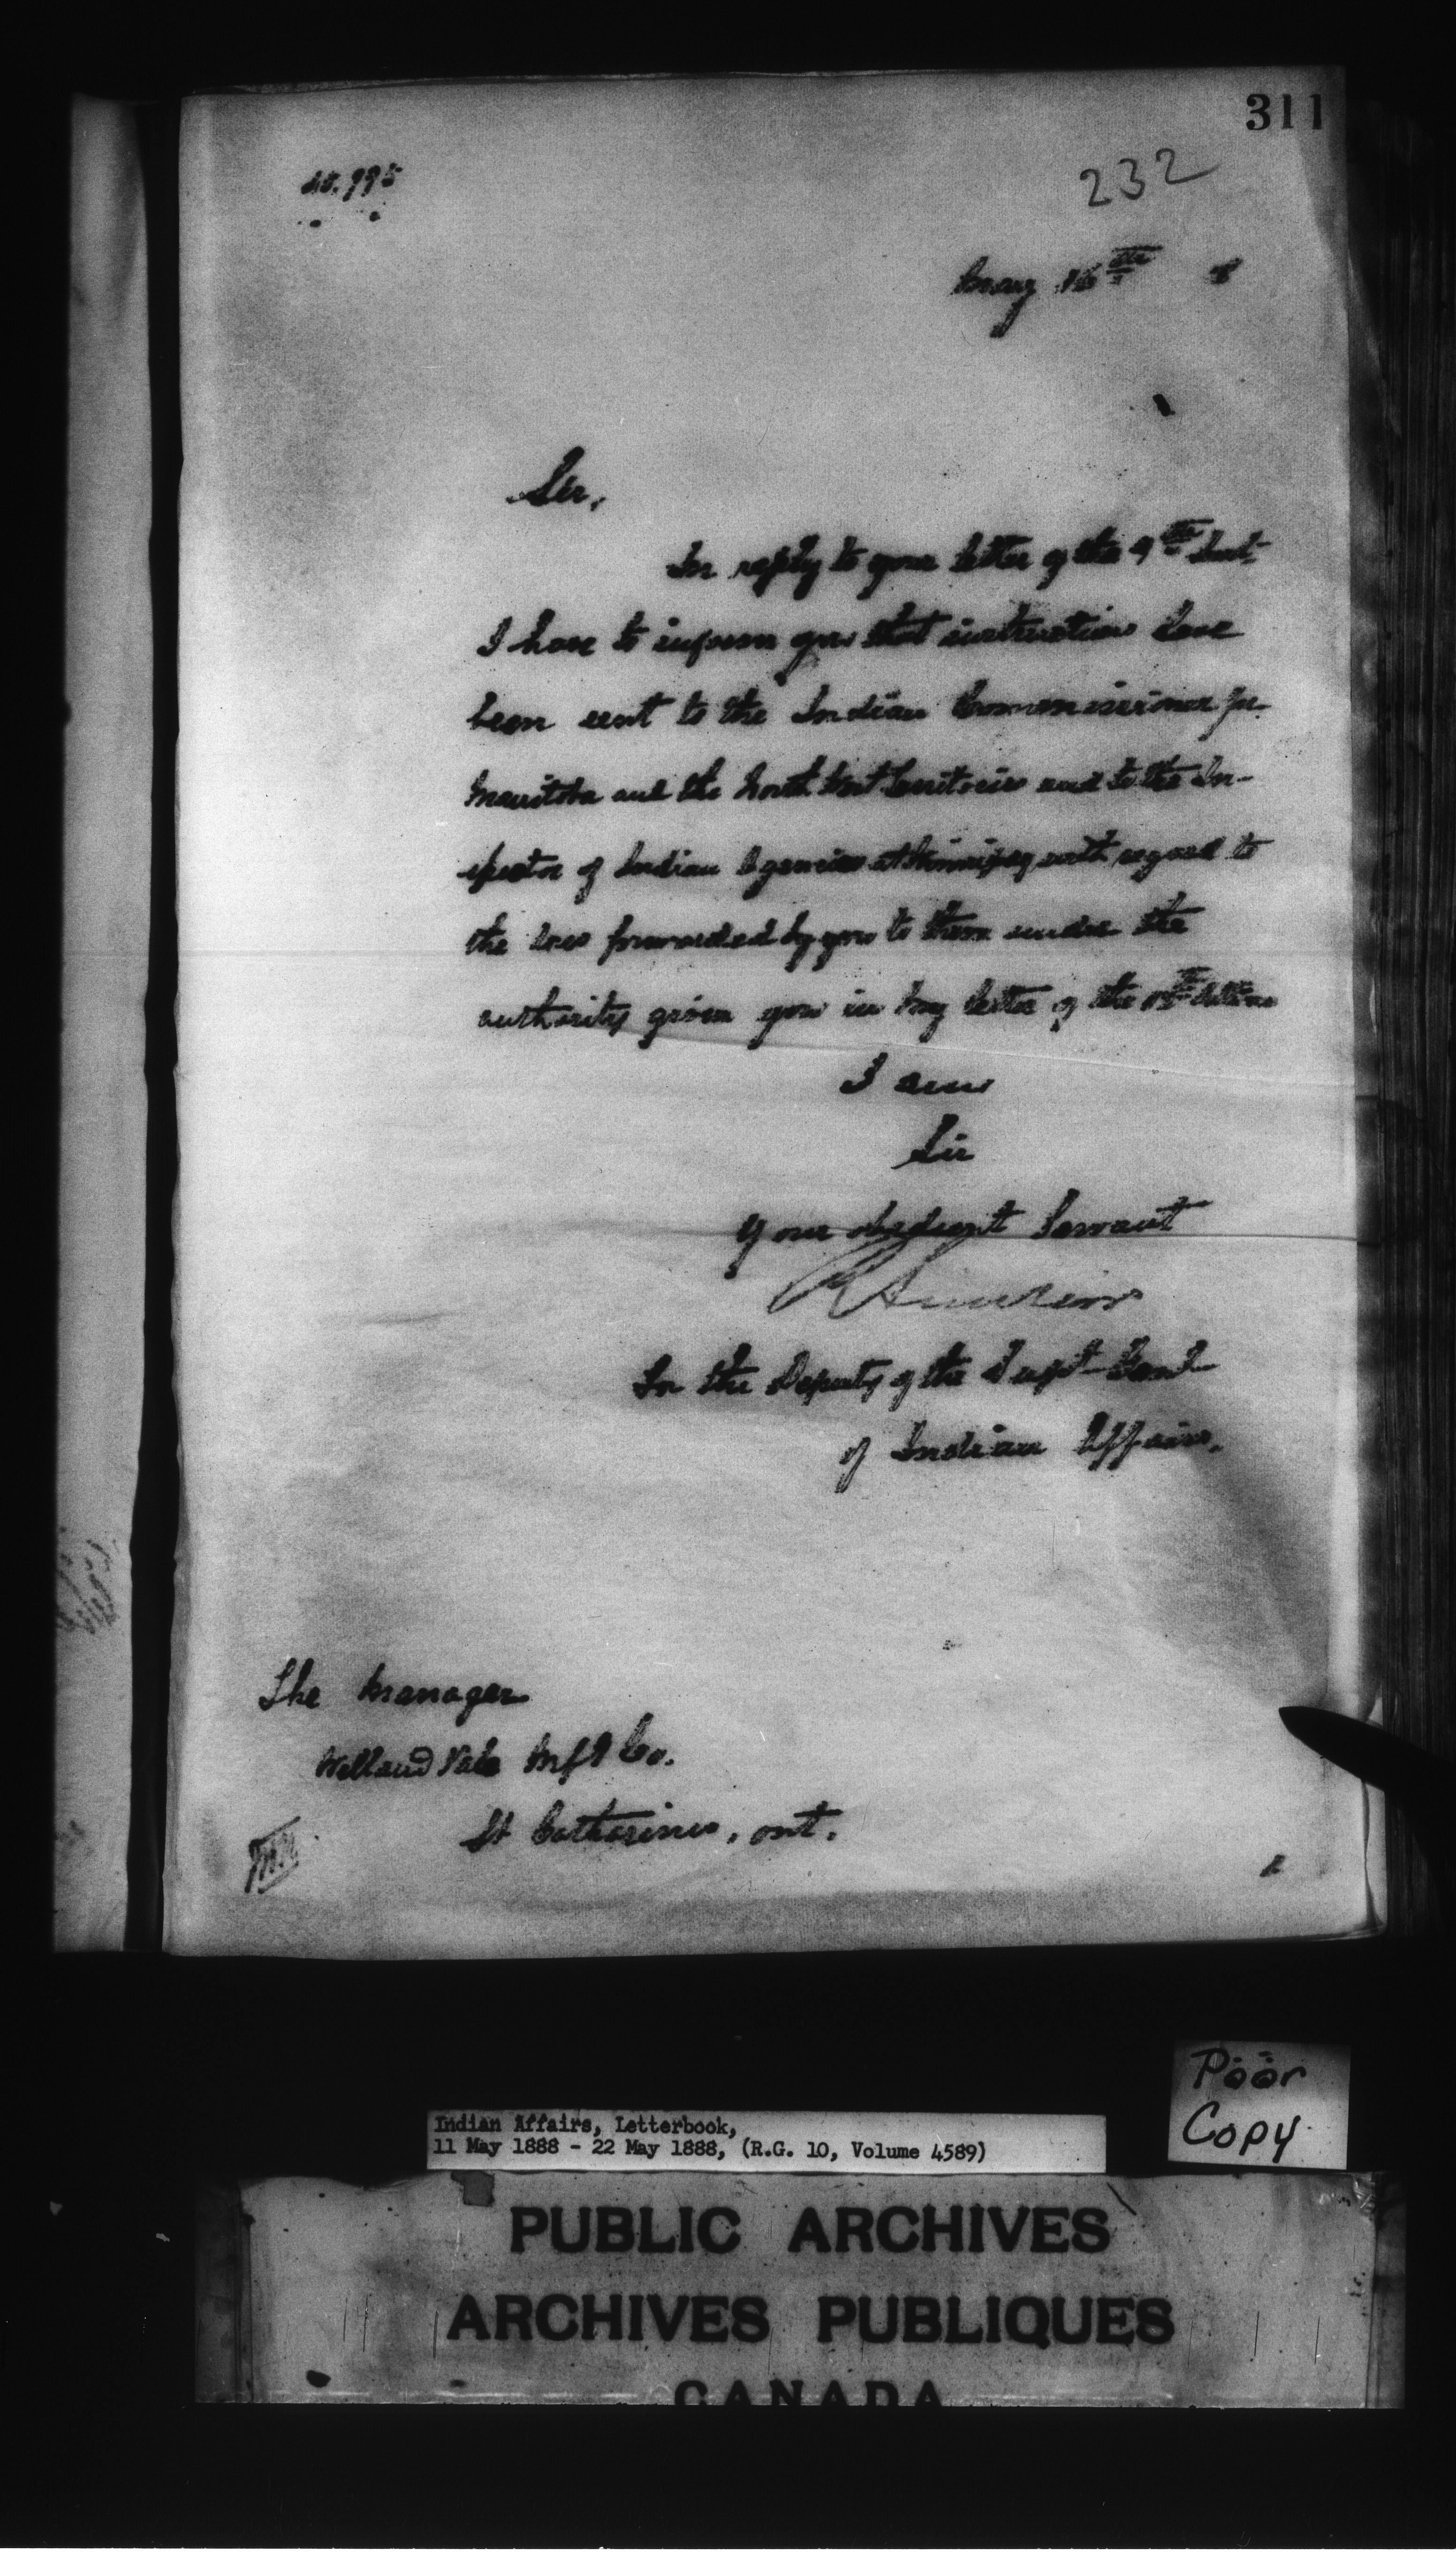 311
232
May 16th 8
Sir,
In reply to your letter of the 9th Inst.
I have to inform you that instructions have
been sent to the Indian Commissioner for
Manitoba and the North West Territories and to the In-
spector of Indian Agencies at Winnipeg with regard to
the forwarded by you to them under the
authority given you in my letter of the
I am
Sir
Your obedient Servant
For the Deputy of the Supt. Genl
of Indian Affairs.
The Manager
Welland Vale Mf'g Co.
St Catharines, Ont.
Poor
Copy
Indian Affairs, Letterbook,
11 May 1888 - 22 May 1888, (R.G. 10, Volume 4589)
PUBLIC ARCHIVES
ARCHIVES PUBLIQUES
CANADA